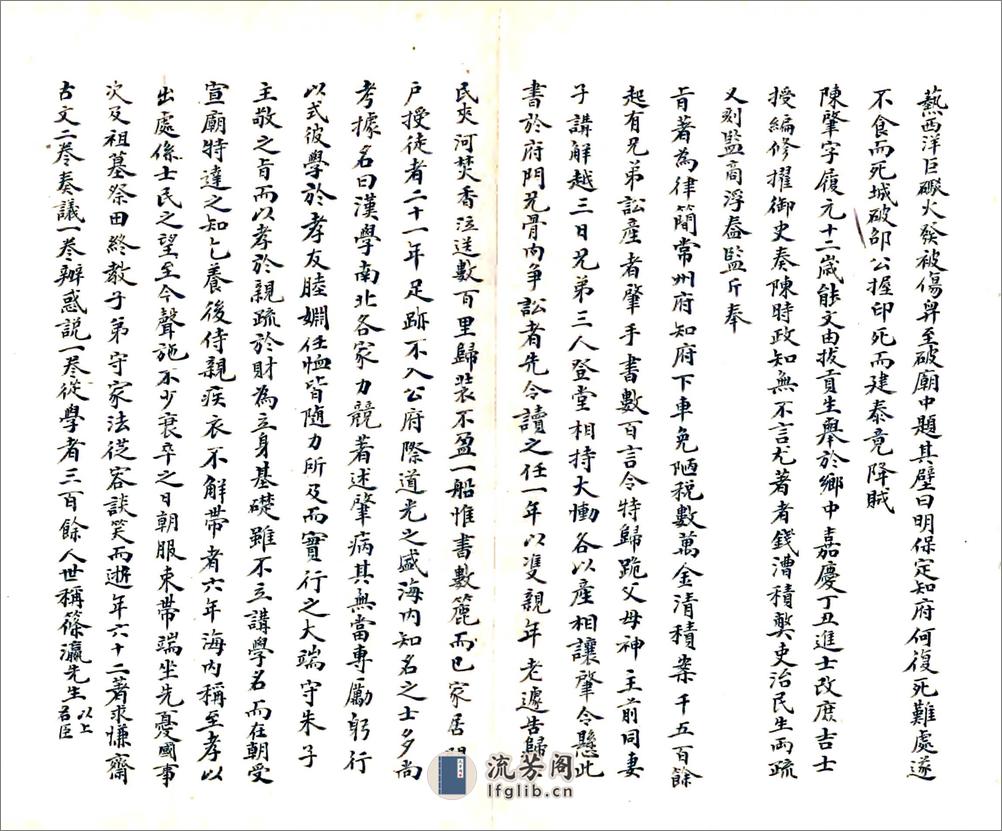 爇西洋巨礟火發被傷舁至破廟中題其壁曰明保定知府何復死難處遂
不食而死城破邵公握印死而建泰竟降賊
陳肇字履元十二嵗能文由拔貢生舉於鄉中嘉慶丁丑進士改庶吉士
授編修擢御史奏陳時政知無不言尤著者錢漕積獘吏治民生兩疏
又刻監商浮春監斤奉
旨著為律簡常州府知府下車免陋税數萬金清積案千五百餘
起有兄弟訟產者肇手書數百言令特歸跪父母神主前同妻
子講解越三日兄弟三人登堂相持大慟各以產相讓肇令懸此
書於府門凡骨肉爭訟者先令讀之任一年以雙親年老遽告歸
民夾河焚香泣送數百里歸裝不盈一船惟書數簏而已家居
戶授徒者二十一年足跡不入公府際道光之盛海内知名之士多尚
考據名曰漢學南北各家力競著述肇病其無當專勵躬行
以式彼學於孝友睦婣任恤皆隨力所及而實行之大端守朱子
主敬之旨而以孝於親疏於財為立身基礎雖不立講學名而在朝受
宣廟特達之知乞養後侍親疾衣不解帶者六年海内稱至孝以
出處係士民之望至今聲施不少衰卒之日朝服束帶端坐先憂國事
次及祖墓祭田終教子弟守家法從容談笑而逝年六十二著求慊齋
古文二卷奏議一卷辨惑説一卷從學者三百餘人世稱篠瀛先生以上名臣
流芳阁
lfglib.cn